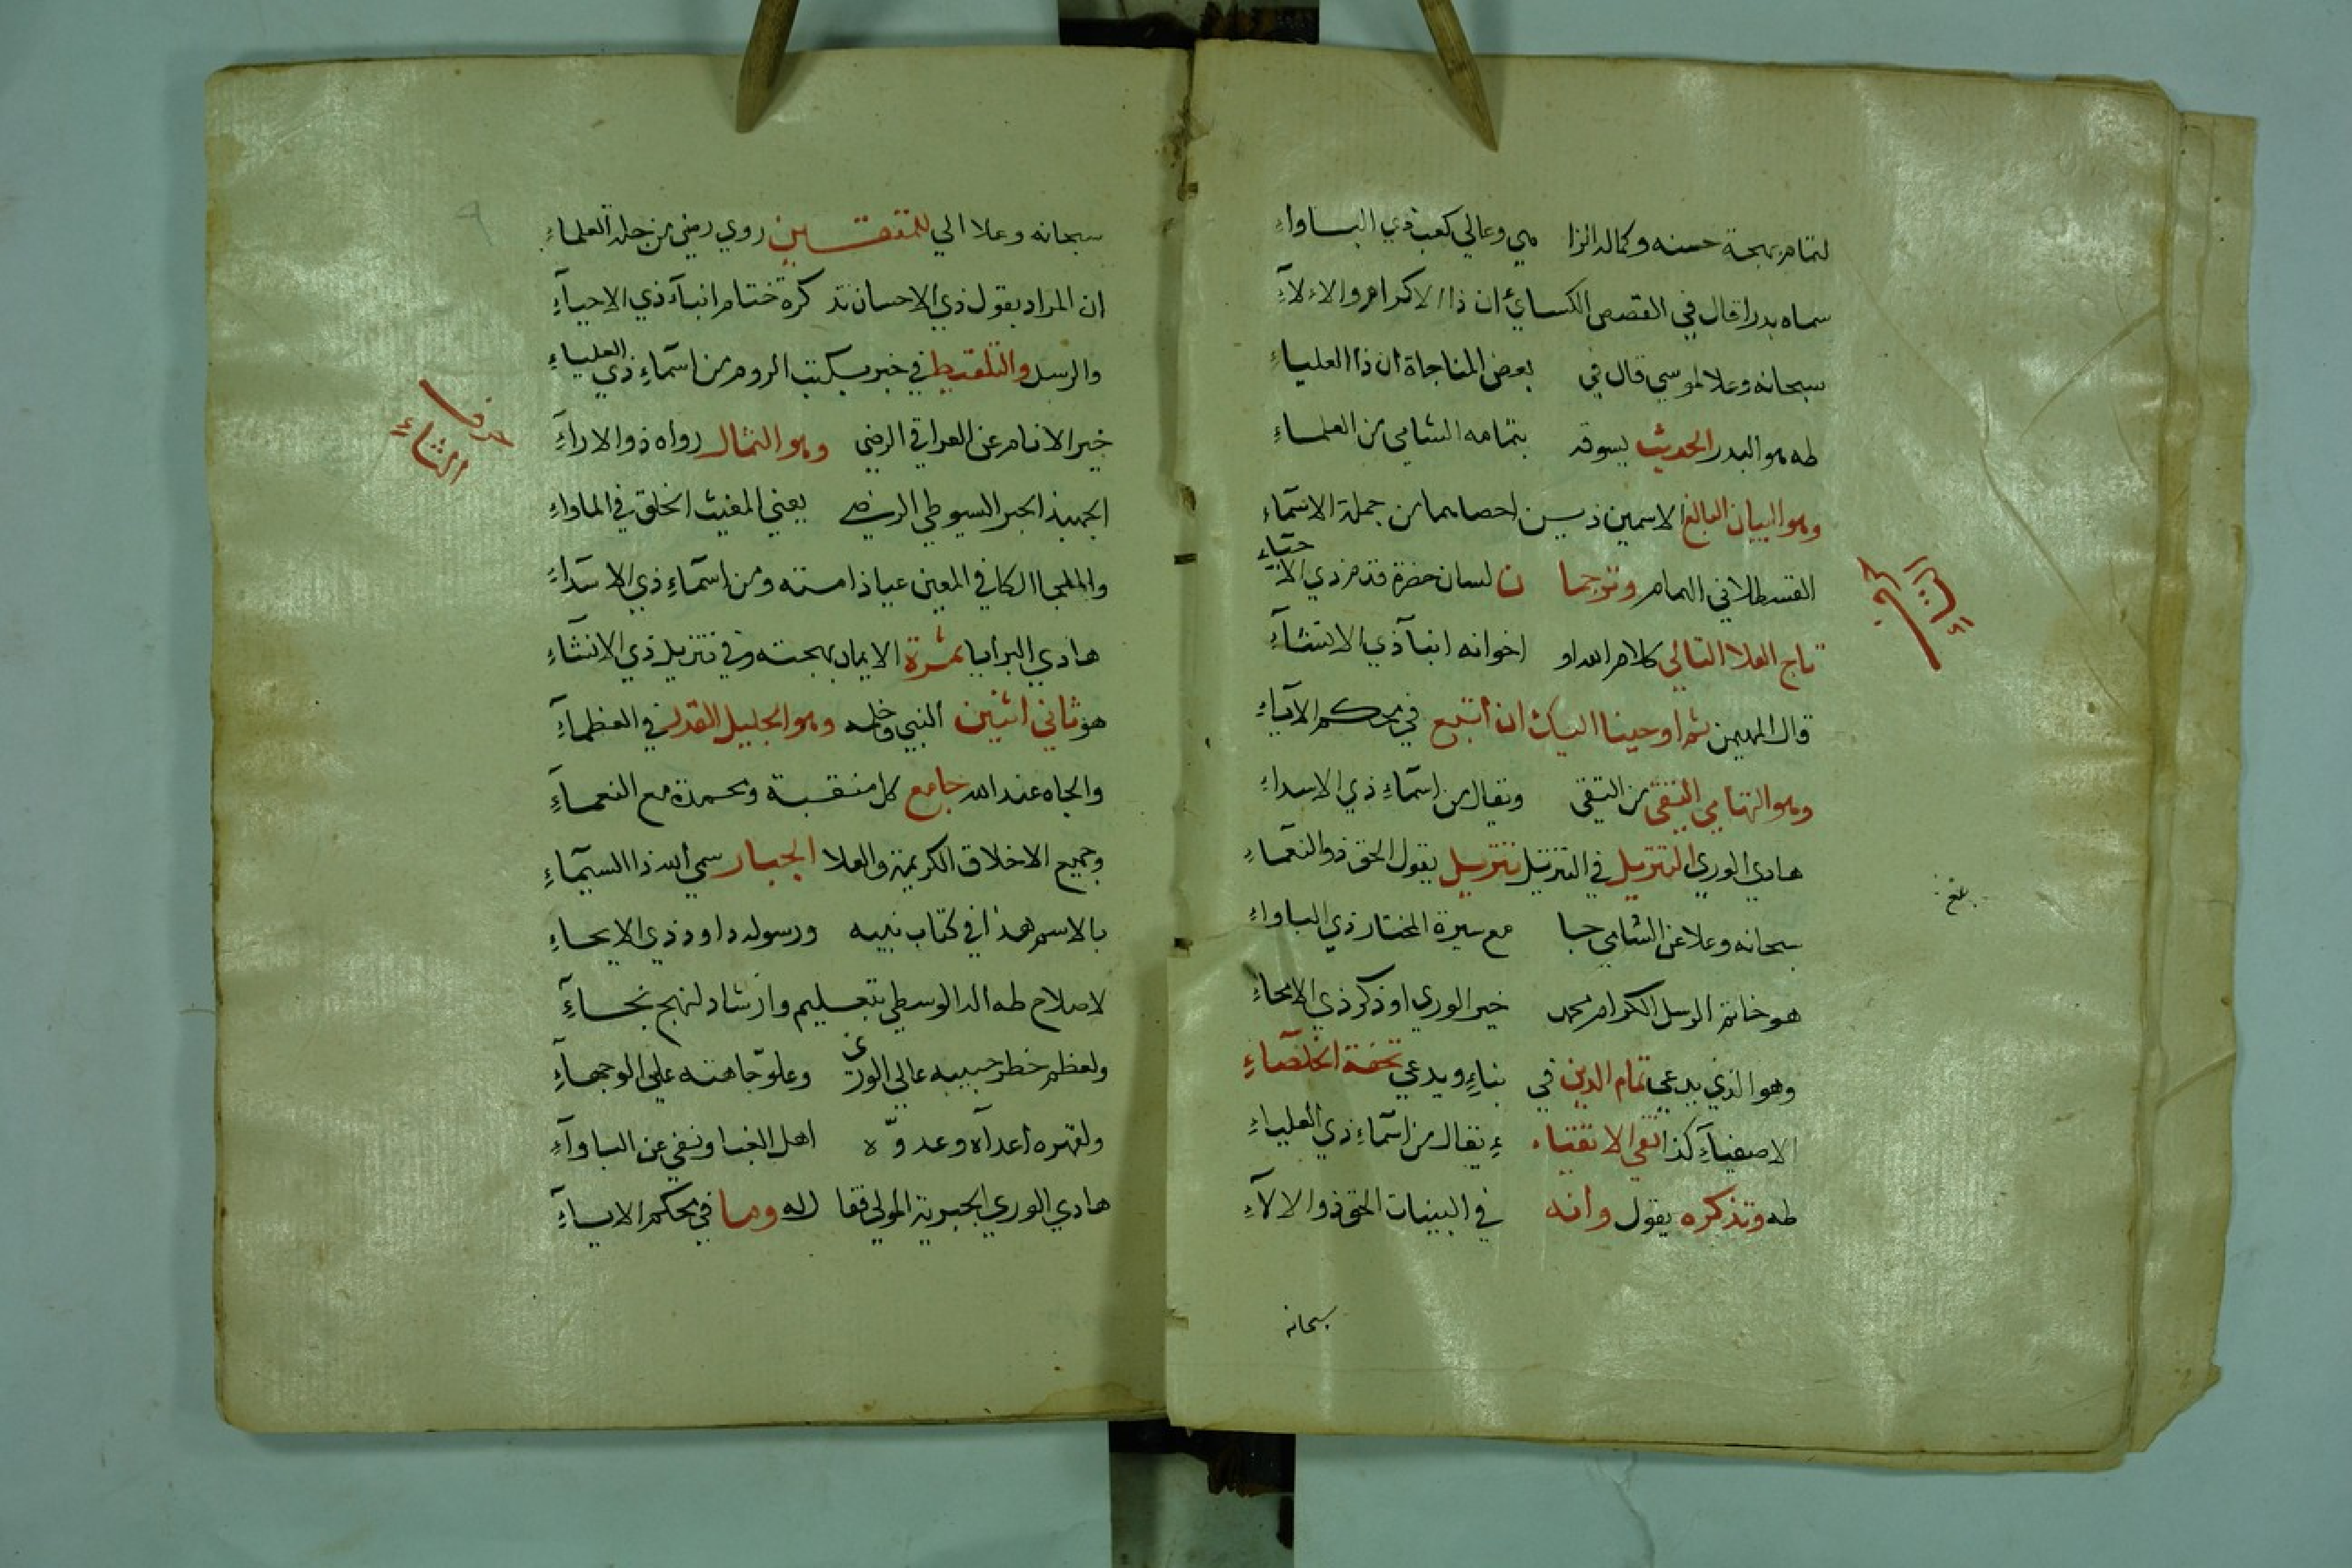 لتمام بهجة حسنه وكماله الزا مي وعالي كعب ذي الباواء
سماه بدرا قال في القصص الكسائي أن ذا الاكرام والالاء
سبحانه وعلا لموسي قال في بعض المناجاة ان ذا العلياء
طه هو البدر الحديث يسوقه بتمامه الشامي من العلماء
وهو البيان البالغ الاسمين ذين احصاهما من جملة الاسماء
القسطلاني الهمام وترجما ن لسان حضرة قدم ذي الاحياء
حرف التاء
تاج العلا التالي كلام الله او اخوانه انبآ ذي الانشآء
قال المهيمن ثم اوحينا اليك ان اتبع في محكم الانباء
وهو التهامي التقي من التقي ويقال من اسماء ذي الاسداء
هادي الوري التنزيل في التنزيل تنزيل يقول الحق ذو النعماء
سبحانه وعلا عن الشامي حبا مع سيرة المختار ذي الباواء
هو خاتم الرسل الكرام محمد خير الوري او ذكر ذي الايحاء
وهو الذي يدعي تمام الدين في بناء ويدعي تحفة الخلصاء
الاصفيآء كذا اتقي الاتقيا ء يقال من اسماء ذي العلياء
طه وتذكره يقول وانه في البينات الحق ذو الالآء
سبحانه
سبحانه وعلا الي للمتقين روي رضي من جلة العلماء
ان المراد بقول ذي الاحسان تذ كرة ختام انبآء ذي الاحيآء
والرسل والتلقيط في خبر بكتب الروم من اسماء ذي العلياء
حرف الثاء
خير الانام عن العراقي الرضي وهو الثمال رواه ذو الاراء
الجهبذ الحبر السيوطي الرضي يعني المغيث الخلق في الماواء
والملجا الكافي المعين عياذ امته ومن اسماء ذي الاسداء
هادي البرايا ثمرة الايمان بهجته وفي تنزيل ذي الانشاء
هو ثاني اثنين النبي وخله وهو الجليل القدر في العظمآء
والجاه عند الله جامع كل منقبة ومحمدة مع النعمآء
وجميع الاخلاق الكريمة والعلا الجبار سمي الله ذا السيمآء
بالاسم هذا في كتاب نبيه ورسوله داود ذي الايحاء
لاصلاح طه الد الوسطي بتعليم وارشاد لنهج نجاء
ولعظم خطر حبيبه عالي الوري وعلو جاهته علي الوجهآء
ولقهره اعدآه وعدوّه اهل الغبا ونفي عن الباوآء
هادي الوري الجبرية المولي فقا ل له وما في محكم الانبآء